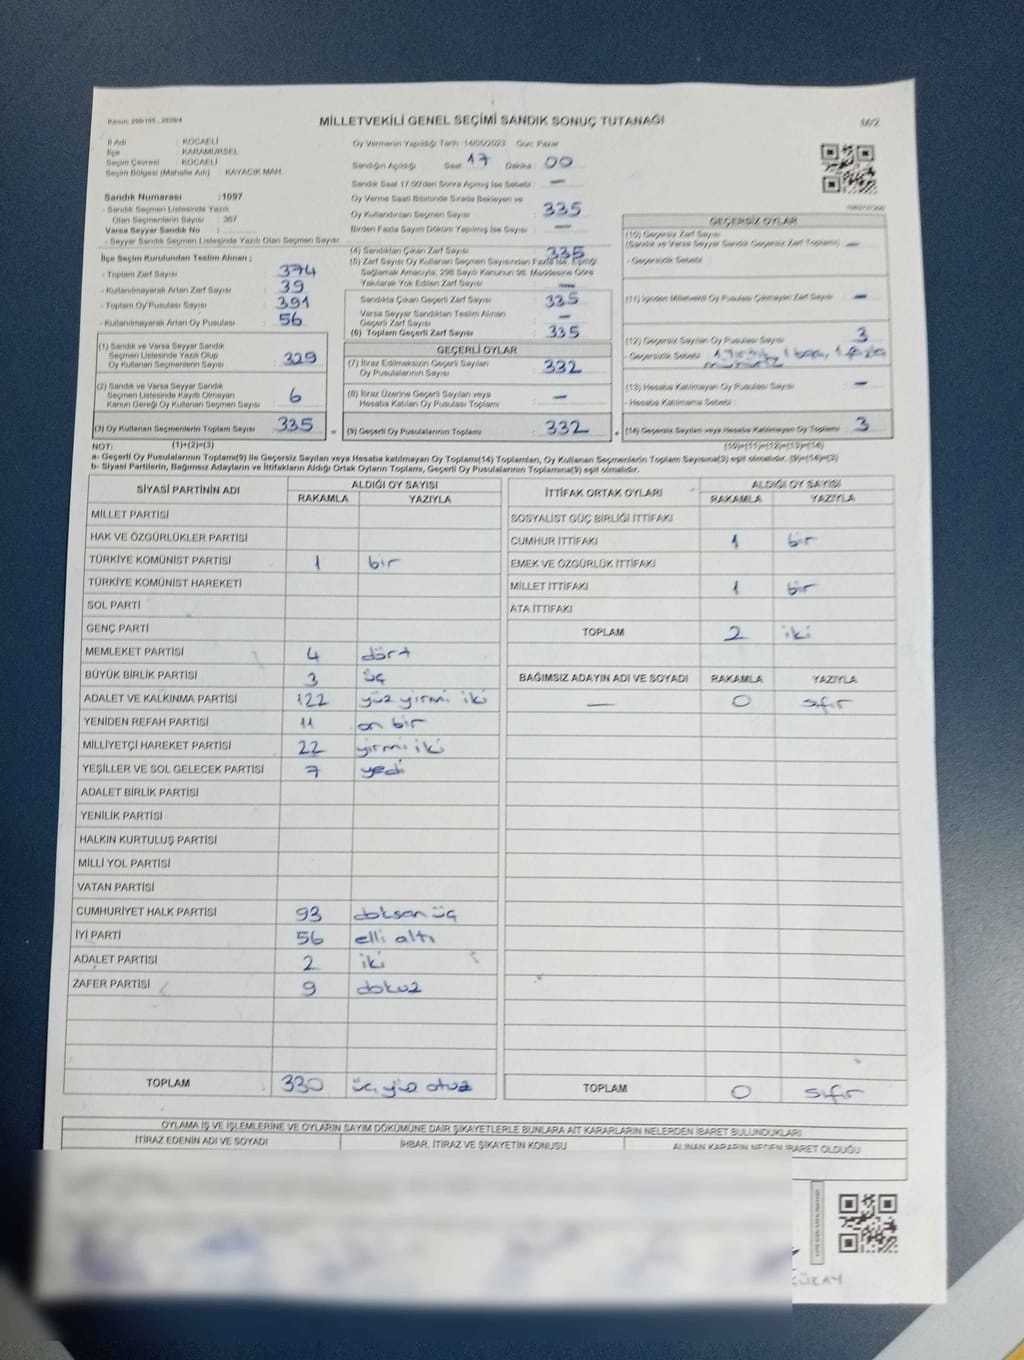 MİLLETVEKİLİ GENEL SEÇİMİ SANDIK SONUÇ TUTANAĞI
İl Adı : KOCAELİ
İlçe : KARAMÜRSEL
Seçim Çevresi : KOCAELİ
Seçim Bölgesi (Mahalle Adı) : KAYACIK MAH.
Sandık Numarası :1097
- Sandık Seçmen Listesinde Yazılı
Olan Seçmenlerin Sayısı : 367
Varsa Seyyar Sandık No :
- Seyyar Sandık Seçmen Listesinde Yazılı Olan Seçmen Sayısı :
İlçe Seçim Kurulundan Teslim Alınan ;
- Toplam Zarf Sayısı : 374
- Kullanılmayarak Artan Zarf Sayısı : 39
- Toplam Oy Pusulası Sayısı : 391
- Kullanılmayarak Artan Oy Pusulası : 56
(1) Sandık ve Varsa Seyyar Sandık
Seçmen Listesinde Yazılı Olup
Oy Kullanan Seçmenlerin Sayısı : 329
(2) Sandık ve Varsa Seyyar Sandık
Seçmen Listesinde Kayıtlı Olmayan
Kanun Gereği Oy Kullanan Seçmen Sayısı : 6
(3) Oy Kullanan Seçmenlerin Toplam Sayısı : 335
Oy Vermenin Yapıldığı Tarih :14/05/2023 Gün: Pazar
Sandığın Açıldığı Saat 17 Dakika : 00
Sandık Saat 17.00'den Sonra Açılmış İse Sebebi : —
Oy Verme Saati Bitiminde Sırada Bekleyen ve
Oy Kullandırılan Seçmen Sayısı : 335
Birden Fazla Sayım Döküm Yapılmış İse Sayısı : —
(4) Sandıktan Çıkan Zarf Sayısı : 335
(5) Zarf Sayısı Oy Kullanan Seçmen Sayısından Fazla İse, Eşitliği
Sağlamak Amacıyla, 298 Sayılı Kanunun 98. Maddesine Göre
Yakılarak Yok Edilen Zarf Sayısı : —
Sandıkta Çıkan Geçerli Zarf Sayısı : 335
Varsa Seyyar Sandıktan Teslim Alınan
Geçerli Zarf Sayısı : —
(6) Toplam Geçerli Zarf Sayısı : 335
GEÇERLİ OYLAR
(7) İtiraz Edilmeksizin Geçerli Sayılan
Oy Pusulalarının Sayısı : 332
(8) İtiraz Üzerine Geçerli Sayılan veya
Hesaba Katılan Oy Pusulası Toplamı : —
(9) Geçerli Oy Pusulalarının Toplamı : 332
GEÇERSİZ OYLAR
(10) Geçersiz Zarf Sayısı
(Sandık ve Varsa Seyyar Sandık Geçersiz Zarf Toplamı) : —
- Geçersizlik Sebebi :
(11) İçinden Milletvekili Oy Pusulası Çıkmayan Zarf Sayısı : —
(12) Geçersiz Sayılan Oy Pusulası Sayısı : 3
- Geçersizlik Sebebi :
(13) Hesaba Katılmayan Oy Pusulası Sayısı : —
- Hesaba Katılmama Sebebi :
(14) Geçersiz Sayılan veya Hesaba Katılmayan Oy Toplamı : 3
NOT: (1)+(2)=(3) (10)+(11)+(12)+(13)=(14)
a- Geçerli Oy Pusulalarının Toplamı(9) ile Geçersiz Sayılan veya Hesaba katılmayan Oy Toplamı(14) Toplamları, Oy Kullanan Seçmenlerin Toplam Sayısına(3) eşit olmalıdır. (9)+(14)=(3)
b- Siyasi Partilerin, Bağımsız Adayların ve İttifakların Aldığı Ortak Oyların Toplamı, Geçerli Oy Pusulalarının Toplamına(9) eşit olmalıdır.
SİYASİ PARTİNİN ADI ALDIĞI OY SAYISI
RAKAMLA YAZIYLA
MİLLET PARTİSİ
HAK VE ÖZGÜRLÜKLER PARTİSİ
TÜRKİYE KOMÜNİST PARTİSİ 1 bir
TÜRKİYE KOMÜNİST HAREKETİ
SOL PARTİ
GENÇ PARTİ
MEMLEKET PARTİSİ 4 dört
BÜYÜK BİRLİK PARTİSİ 3 üç
ADALET VE KALKINMA PARTİSİ 122 yüz yirmi iki
YENİDEN REFAH PARTİSİ 11 on bir
MİLLİYETÇİ HAREKET PARTİSİ 22 yirmi iki
YEŞİLLER VE SOL GELECEK PARTİSİ 7 yedi
ADALET BİRLİK PARTİSİ
YENİLİK PARTİSİ
HALKIN KURTULUŞ PARTİSİ
MİLLİ YOL PARTİSİ
VATAN PARTİSİ
CUMHURİYET HALK PARTİSİ 93 doksan üç
İYİ PARTİ 56 elli altı
ADALET PARTİSİ 2 iki
ZAFER PARTİSİ 9 dokuz
TOPLAM 330 üç yüz otuz
İTTİFAK ORTAK OYLARI ALDIĞI OY SAYISI
RAKAMLA YAZIYLA
SOSYALİST GÜÇ BİRLİĞİ İTTİFAKI
CUMHUR İTTİFAKI 1 bir
EMEK VE ÖZGÜRLÜK İTTİFAKI
MİLLET İTTİFAKI 1 bir
ATA İTTİFAKI
TOPLAM 2 iki
BAĞIMSIZ ADAYIN ADI VE SOYADI RAKAMLA YAZIYLA
— 0 sıfır
TOPLAM 0 sıfır
OYLAMA İŞ VE İŞLEMLERİNE VE OYLARIN SAYIM DÖKÜMÜNE DAİR ŞİKAYETLERLE BUNLARA AİT KARARLARIN NELERDEN İBARET BULUNDUKLARI
İTİRAZ EDENİN ADI VE SOYADI İHBAR, İTİRAZ VE ŞİKAYETİN KONUSU ALINAN KARARIN NEDEN İBARET OLDUĞU